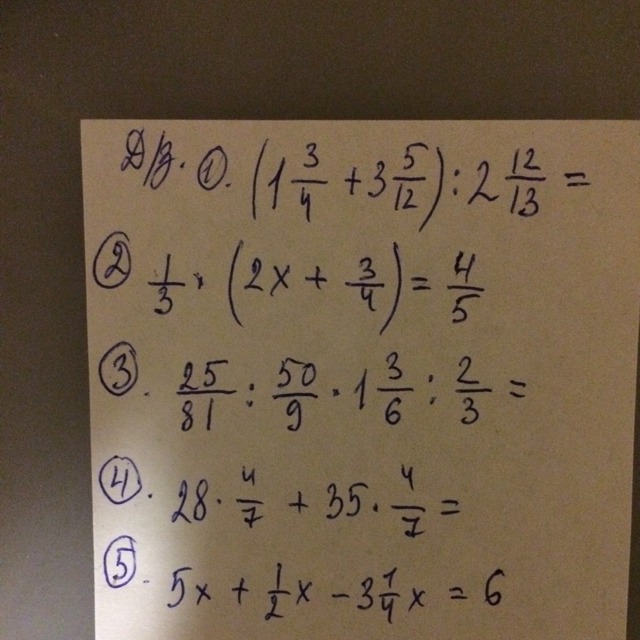 Д/З. ①. (1 3/4 + 3 5/12) : 2 12/13 =
② 1/3 · (2x + 3/4) = 4/5
③. 25/81 : 50/9 · 1 3/6 : 2/3 =
④. 28 · 4/7 + 35 · 4/7 =
⑤. 5x + 1/2 x - 3 1/4 x = 6